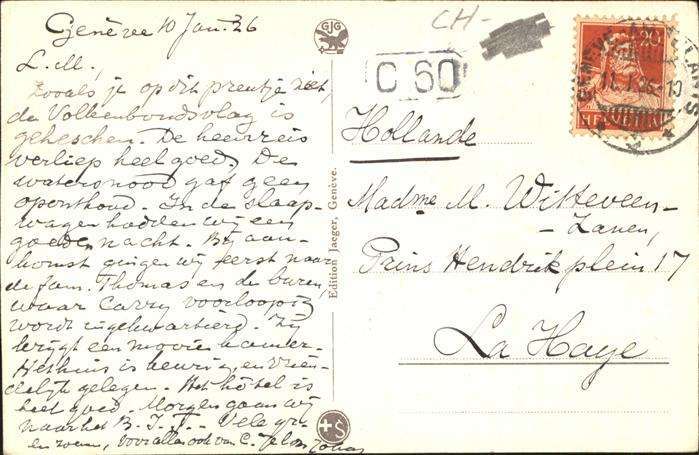 Genève 10 Jan. 26
L. M.,
Zooals je op dit prentje ziet,
de Volkenbondsvlag is
geheschen. De heenreis
verliep heel goed. De
watersnood gaf geen
oponthoud. In de slaap-
wagen hadden wij een
goeden nacht. Bij aan-
komst gingen wij eerst naar
de fam. Thomas en de buren,
waar Carry voorloopig
wordt ingekwartierd. Zij
krijgt een mooie kamer.
Het huis is keurig, en vrien-
delijk gelegen. Het hôtel is
heel goed. Morgen gaan wij
naar het B. I. T. Vele gr.
en zoenen, vooral ook van C.
GJG
Edition Jaeger, Genève.
+S
CH-
C 60
20
HELVETIA
GENÈVE
11.I.26.-10
Hollande
Madme M. Witteveen-
- Zanen,
Prins Hendrikplein 17
La Haye